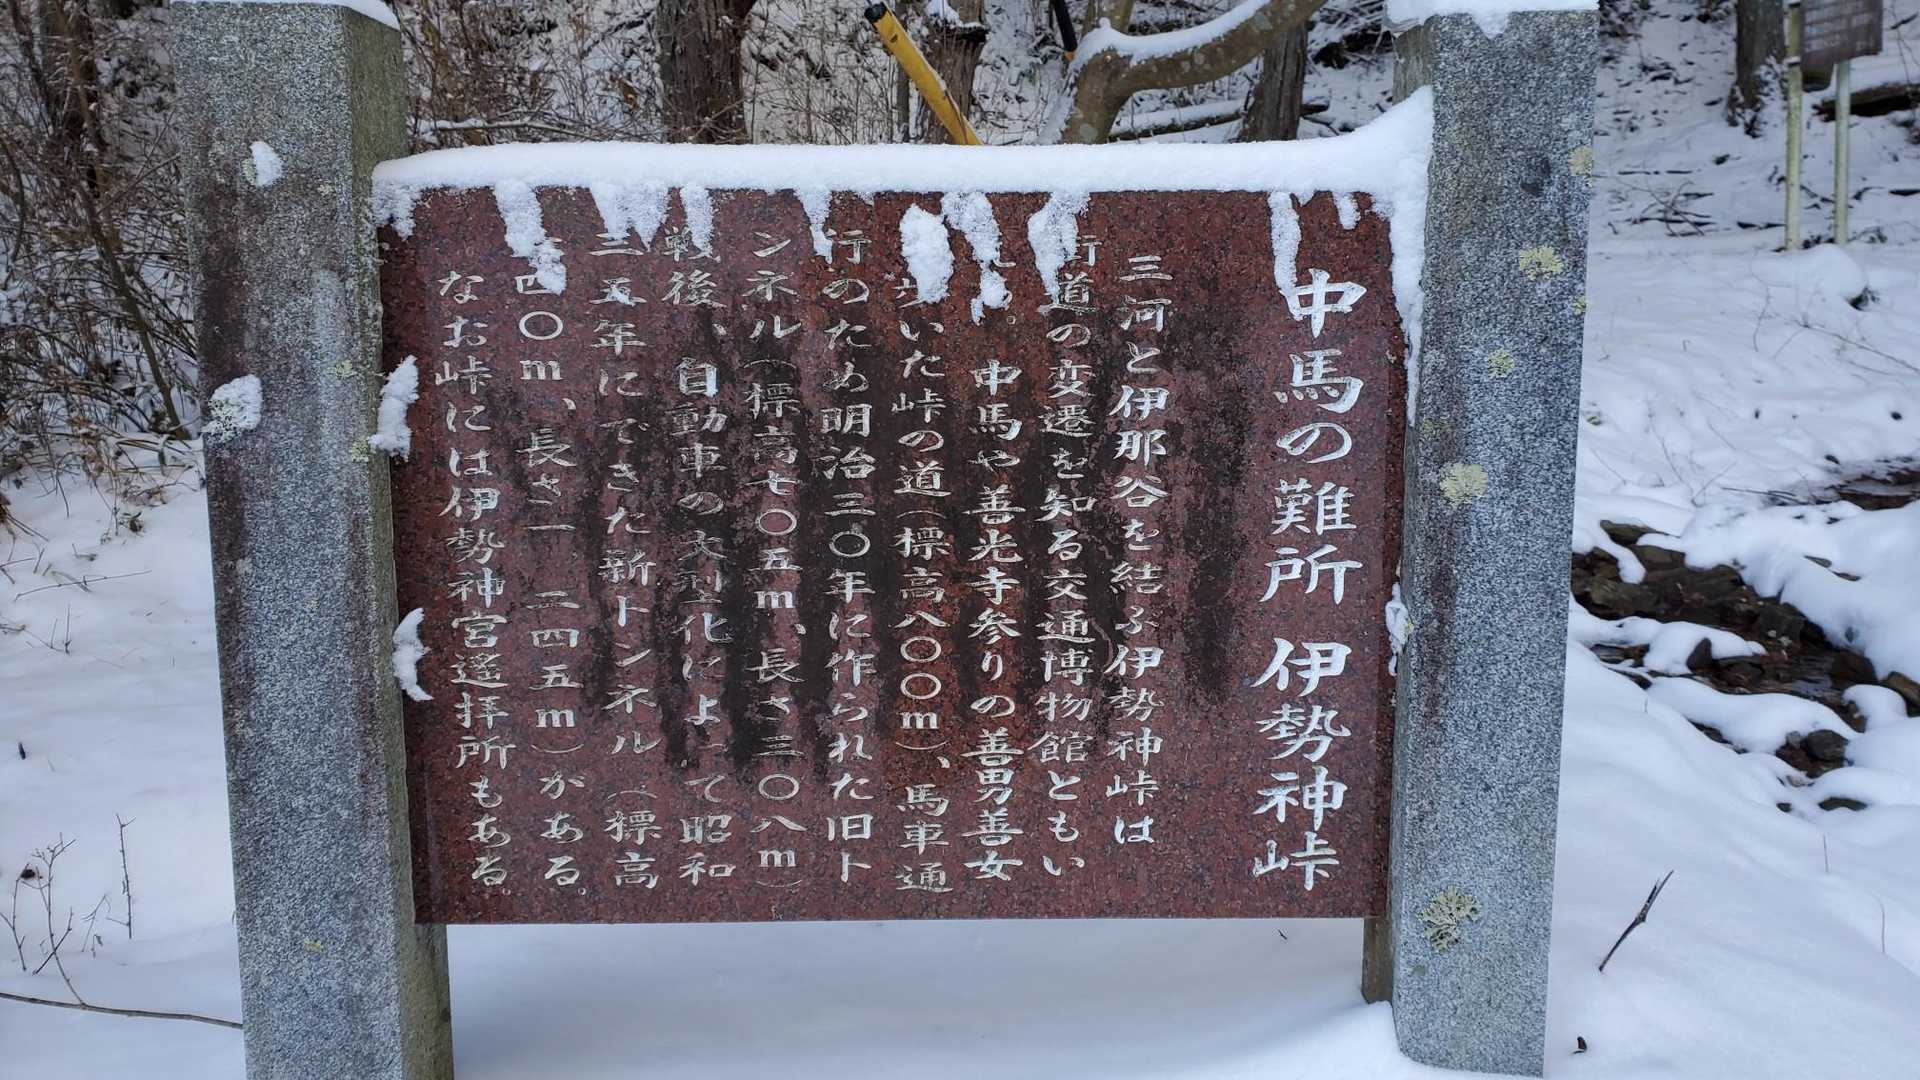 中馬の難所 伊勢神峠
三河と伊那谷を結ぶ伊勢神峠は
街道の変遷を知る交通博物館ともい
。中馬や善光寺参りの善男善女
歩いた峠の道(標高八〇〇m)、馬車通
行のため明治三〇年に作られた旧ト
ンネル(標高七〇五m、長さ三〇八m)
戦後、自動車の大型化によって昭和
三五年にできた新トンネル(標高
四〇m、長さ一二四五m)がある。
なお峠には伊勢神宮遥拝所もある。